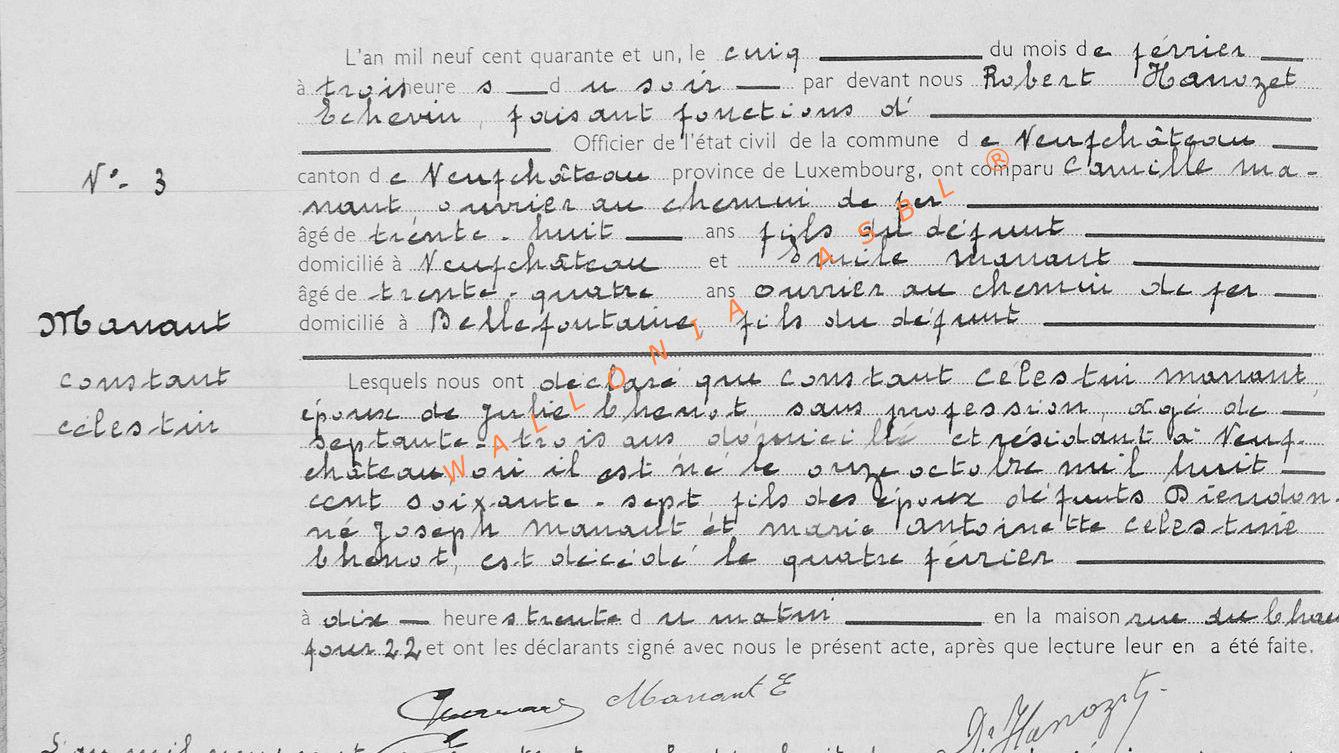 L'an mil neuf cent quarante et un, le cinq du mois de février
à trois heure s du soir par devant nous Robert Hanozet
Echevin, faisant fonctions d'
Officier de l'état civil de la commune de Neufchâteau
N° 3
canton de Neufchâteau province de Luxembourg, ont comparu Camille Ma-
nant ouvrier au chemin de fer
âgé de trente-huit ans fils du défunt
domicilié à Neufchâteau et Emile Manant
âgé de trente-quatre ans ouvrier au chemin de fer
Manant
domicilié à Bellefontaine, fils du défunt
constant
Lesquels nous ont déclaré que Constant Célestin Manant
célestin
époux de Julie Thenot sans profession, âgé de
septante-trois ans domicilié et résidant à Neuf-
château où il est né le onze octobre mil huit
cent soixante-sept fils des époux défunts Dieudon-
né Joseph Manant et Marie Antoinette Célestine
Thenot, est décédé le quatre février
à dix heures trente du matin en la maison rue du Chau
four 22 et ont les déclarants signé avec nous le présent acte, après que lecture leur en a été faite.
Manant E
Hanozet
WALLONIA ASBL ®